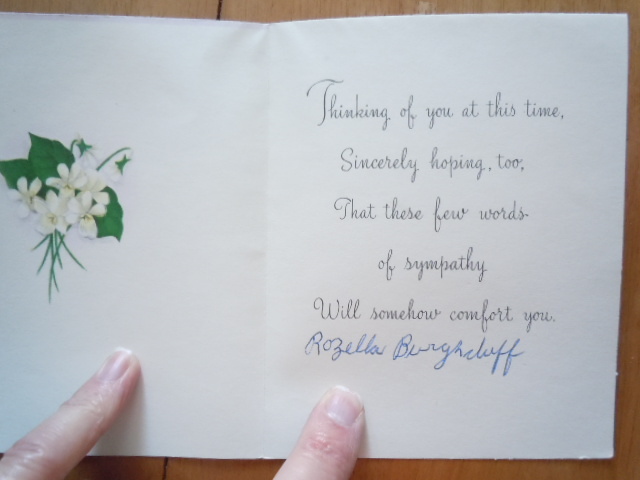 Thinking of you at this time,
Sincerely hoping, too,
That these few words
of sympathy
Will somehow comfort you.
Rozella Burghduff